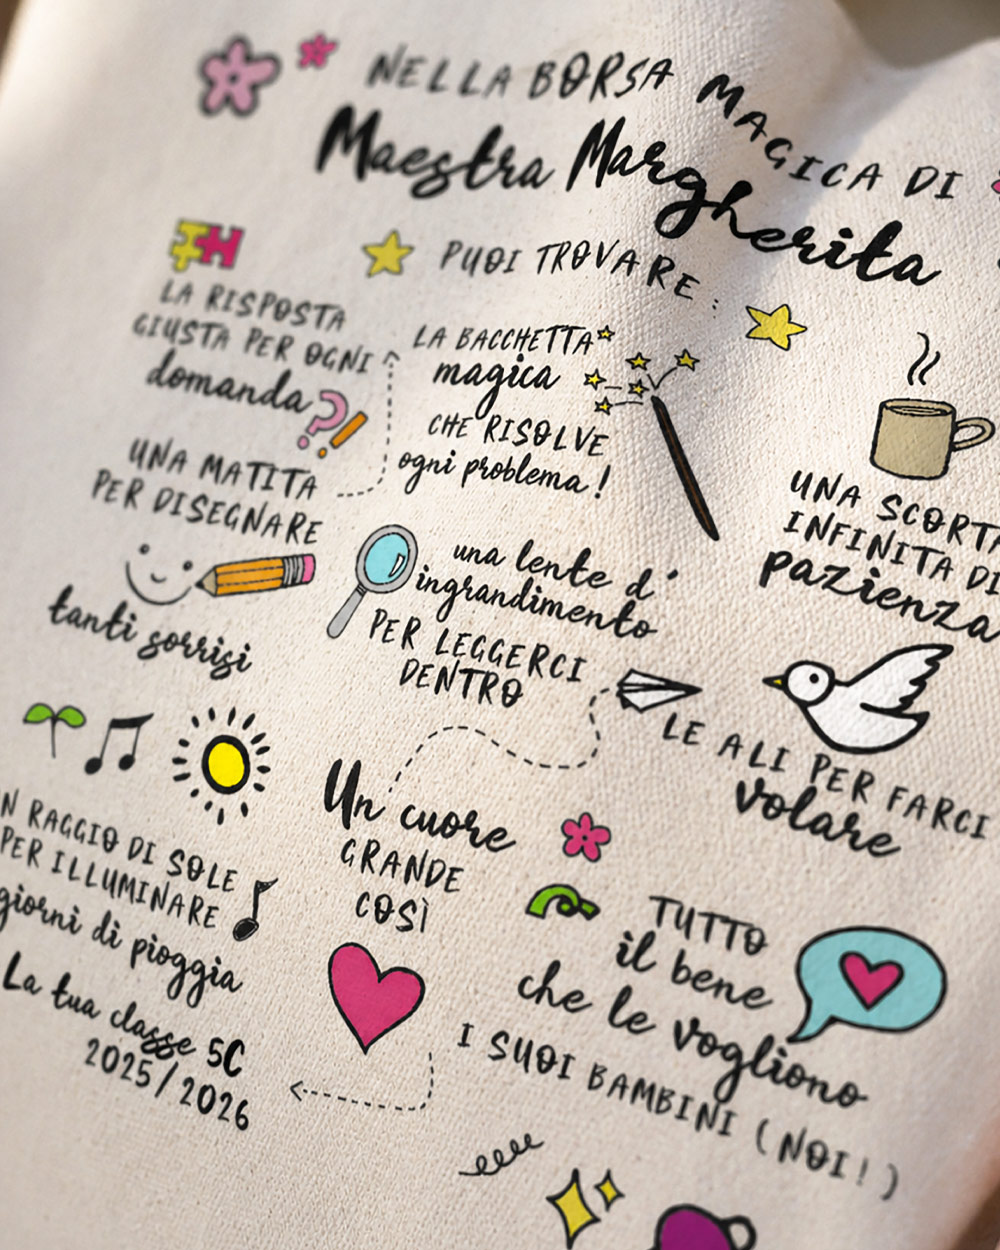 NELLA BORSA MAGICA DI
Maestra Margherita
PUOI TROVARE:
LA RISPOSTA
GIUSTA PER OGNI
domanda
?!
LA BACCHETTA
magica
CHE RISOLVE
ogni problema!
UNA MATITA
PER DISEGNARE
tanti sorrisi
una lente d'
ingrandimento
PER LEGGERCI
DENTRO
UNA SCORTA
INFINITA DI
pazienza
LE ALI PER FARCI
volare
N RAGGIO DI SOLE
PER ILLUMINARE
giorni di pioggia
Un cuore
GRANDE
COSÌ
TUTTO
il bene
che le vogliono
I SUOI BAMBINI (NOI!)
La tua classe 5C
2025/2026